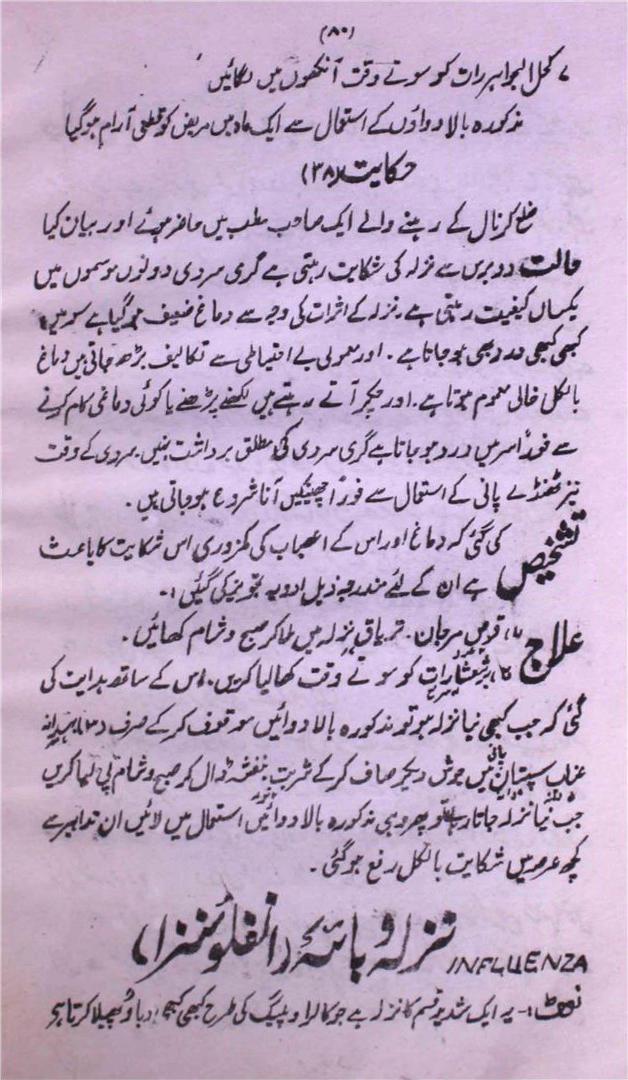 (۸۰)
۷ کحل الجواہر رات کو سوتے وقت آنکھوں میں لگائیں
مذکورہ بالا دواؤں کے استعمال سے ایک ماہ میں مریض کو قطعی آرام ہوگیا
حکایت (۳۸)
ضلع کرنال کے رہنے والے ایک صاحب مطب میں حاضر ہوئے اور بیان کیا
حالت دو برس سے نزلہ کی شکایت رہتی ہے گرمی سردی دونوں موسموں میں
یکساں کیفیت رہتی ہے نزلہ کے اثرات کی وجہ سے دماغ ضعیف ہوگیا ہے سر میں
کبھی کبھی درد بھی ہو جاتا ہے۔ اور معمولی بے احتیاطی سے تکالیف بڑھ جاتی ہیں دماغ
بالکل خالی معلوم ہوتا ہے۔ اور چکر آتے رہتے ہیں لکھنے پڑھنے یا کوئی دماغی کام کرنے
سے فوراً سر میں درد ہو جاتا ہے گرمی سردی کی مطلق برداشت نہیں۔ سردی کے وقت
نیز ٹھنڈے پانی کے استعمال سے فوراً چھینکیں آنا شروع ہو جاتی ہیں۔
تشخیص کی گئی کہ دماغ اور اس کے اعصاب کی کمزوری اس شکایت کا باعث
ہے ان کے لئے مندرجہ ذیل ادویہ تجویز کی گئیں :۔
علاج ۱، قرص مرجان۔ تریاق نزلہ میں ملا کر صبح و شام کھائیں۔
۲، برشعشا رات کو سوتے وقت کھا لیا کریں۔ اس کے ساتھ ہدایت کی
گئی کہ جب کبھی نیا نزلہ ہو تو مذکورہ بالا دوائیں موقوف کر کے صرف بہدانہ
عناب سپستان پانی میں جوش دیکر صاف کر کے شربت بنفشہ ڈال کر صبح و شام پی لیا کریں
جب نیا نزلہ جاتا رہے تو پھر وہی مذکورہ بالا دوائیں استعمال میں لائیں ان تدابیر سے
کچھ عرصہ میں شکایت بالکل رفع ہوگئی۔
نزلہ وبائیہ (انفلوئنزا) INFLUENZA
نوٹ :۔ یہ ایک شدید قسم کا نزلہ ہے جو کالرا و پلیگ کی طرح کبھی کبھی وباءً پھیلا کرتا ہے